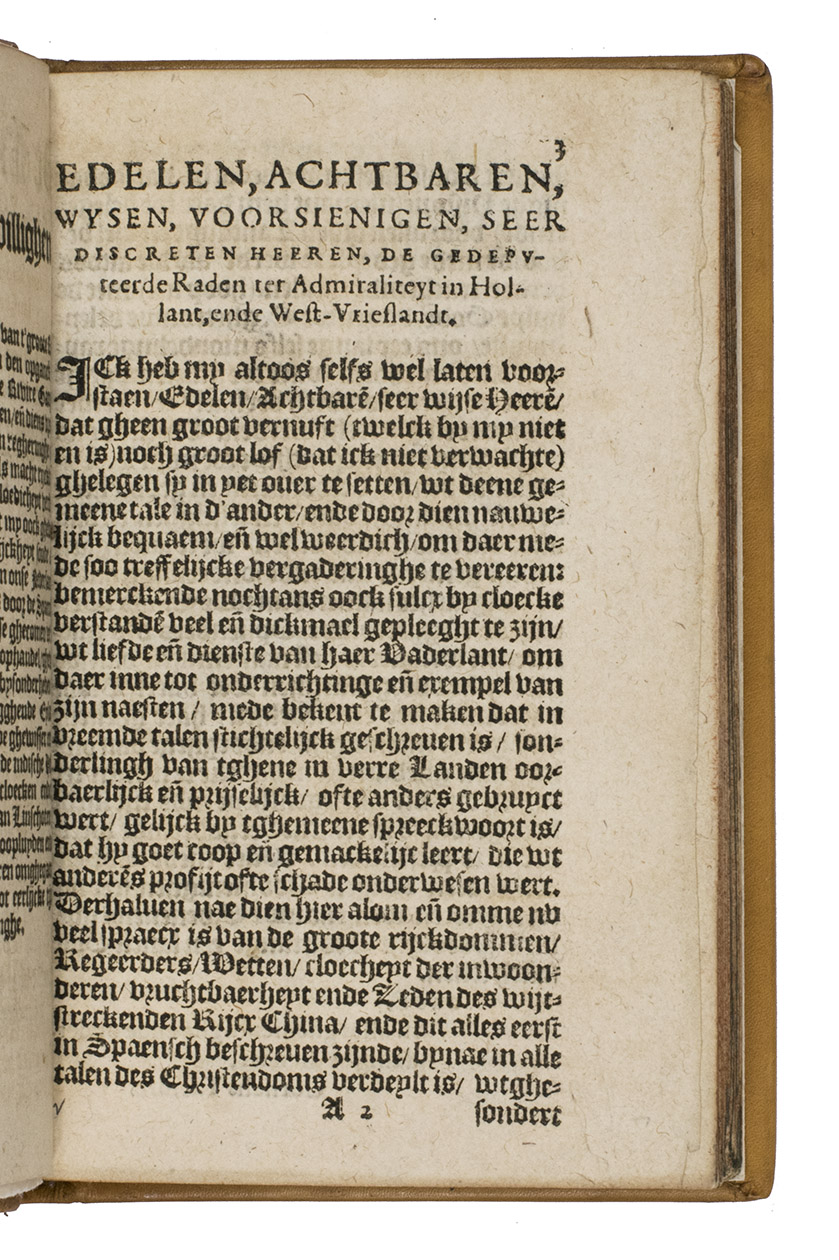 3
EDELEN, ACHTBAREN,
WYSEN, VOORSIENIGEN, SEER
DISCRETEN HEEREN, DE GEDEPV-
teerde Raden ter Admiraliteyt in Hol-
lant, ende West-Vrieslandt.
ICk heb my altoos selfs wel laten voor-
staen/Edelen/Achtbarē/seer wijse Heerē/
dat gheen groot vernuft (twelck by my niet
en is) noch groot lof (dat ick niet verwachte)
ghelegen sy in yet ouer te setten/wt deene ge-
meene tale in d'ander/ende door dien nauwe-
lijck bequaem/eñ wel weerdich/om daer me-
de soo treffelijcke vergaderinghe te vereeren:
bemerckende nochtans oock sulcx by cloecke
verstandē veel eñ dickmael gepleeght te zijn/
wt liefde eñ dienste van haer Vaderlant/ om
daer inne tot onderrichtinge eñ exempel van
zijn naesten / mede bekent te maken dat in
vreemde talen stichtelijck geschreuen is / son-
derlingh van tghene in verre Landen oor-
baerlijck eñ prijselijck/ ofte anders gebruyct
wert/ gelijck by tghemeene spreeckwoort is/
dat hy goet coop eñ gemackelijc leert/ die wt
anderēs profijt ofte schade onderwesen wert.
Derhaluen nae dien hier alom eñ omme nv
veel spraecx is van de groote rijckdommen/
Regeerders/Wetten/ cloecheyt der inwoon-
deren/ vruchtbaerheyt ende Zeden des wijt-
streckenden Rijcx China/ ende dit alles eerst
in Spaensch beschreuen zijnde/ bynae in alle
talen des Christendoms verdeylt is/ wtghe-
A 2 sondert